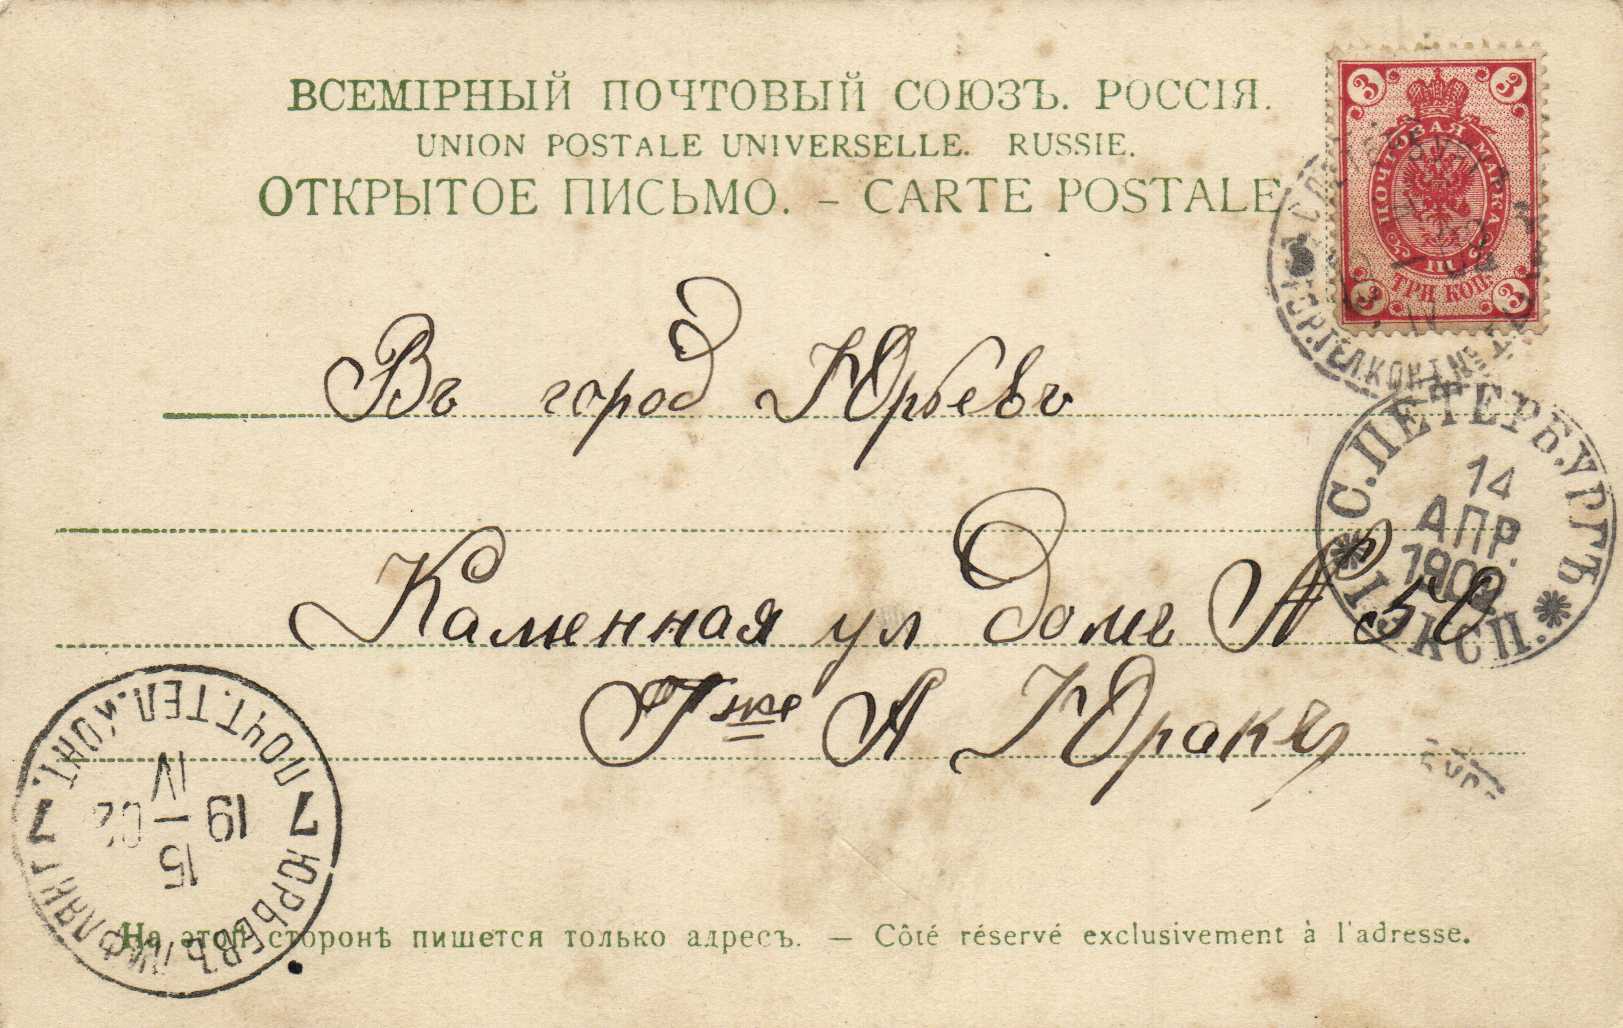 ВСЕМІРНЫЙ ПОЧТОВЫЙ СОЮЗЪ. РОССІЯ.
UNION POSTALE UNIVERSELLE. RUSSIE.
ОТКРЫТОЕ ПИСЬМО. – CARTE POSTALE
3 3
ПОЧТОВАЯ МАРКА
III
ТРИ КОП.
3 3
Въ город Юрьевъ
С.ПЕТЕРБУРГЪ
14
АПР.
1902
I ЭКСП.
Каменная ул Доме № 50
Гже А Юракъ
ПОЧТ.ТЕЛ.КОНТ.
IV
19 — 02
15
7 ЮРЬЕВЪ ЛИФЛЯНТ 7
На этой сторонѣ пишется только адресъ. — Côté réservé exclusivement à l'adresse.